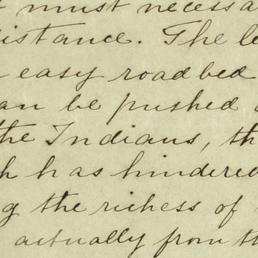 must necessa
istance. The le
easy roadbed
an be pushed
the Indians, th
h has hindered
g the richess of
actually from t